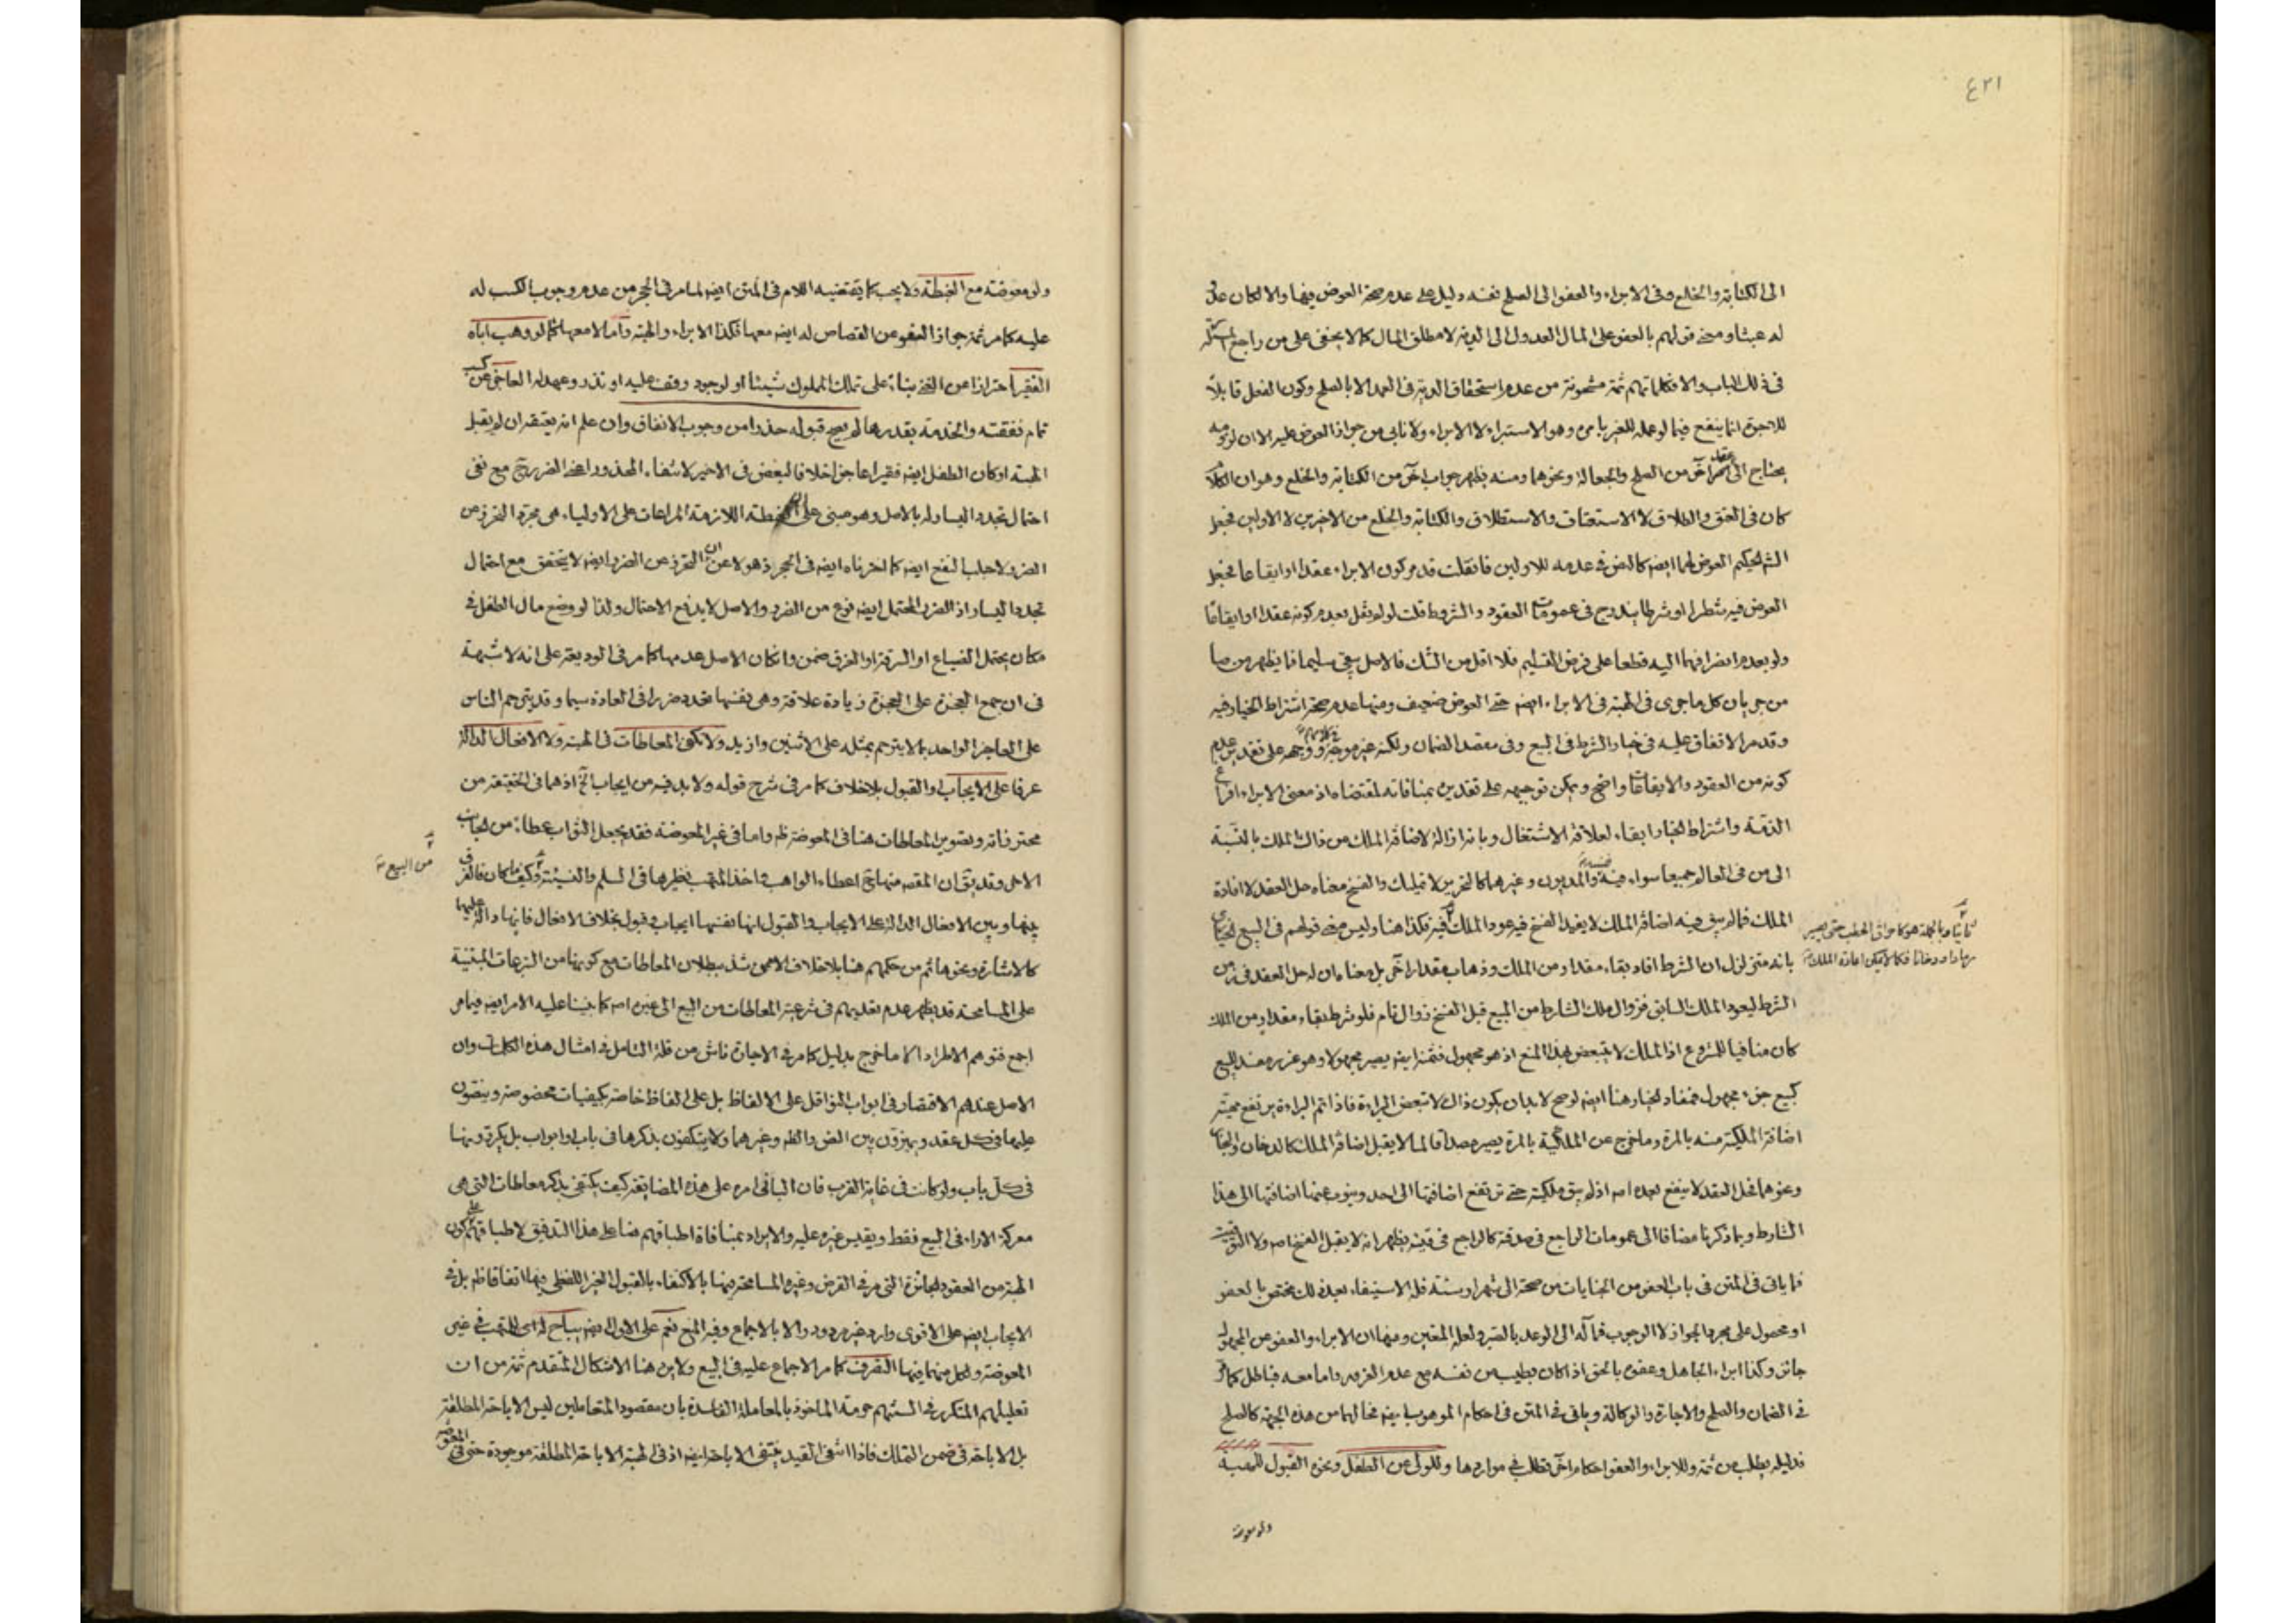 ٤٢١
الى الكتابة والخلع وفى الابراء والعفو الى الصلح نفسه دليل على عدم صحة العوض فيها والا لكان
له عبثا ومعنى قولهم بالعفو على المال العدول الى الدية لا مطلق المال كما لا يخفى على من راجع
فى ذلك الباب والا فكلماتهم ثمة مشحونة من عدم استحقاق الدية فى العمد الا بالصلح وكون الفعل قابلاً
للاجرة انما ينفع فيما لو عمله للغير بامره وهو الاستبراء لا الابراء ولا نابى من جواز العوض عليه الا ان
يحتاج الى عقد آخر من الصلح والجعالة ونحوهما ومنه يظهر جواب آخر من الكتابة والخلع وهو ان
كان فى العتق والطلاق لا الاستعتاق والاستطلاق والكتابة والخلع من الاخيرين لا الاولين فجعل
العوض لهما ايضا كالنص فى عدمه للاولين فان قلت قد مر كون الابراء عقدا او ايقاعا فجعل
العوض فيه شطرا او شرطا يندرج فى عمومات العقود والشروط قلت لو لم نقل بعدم كونه عقدا او ايقاعا
ولو بعدم انصرافهما اليه قطعا على فرض التسليم فلا اقل من الشك فالاصل بقى سليما فما يظهر من
من جريان كل ما جرى فى الهبة فى الابراء ايضا حتى العوض ضعيف ومنها عدم صحة اشتراط الخيار فيه
وقد مر الاتفاق عليه فى خيار الشرط فى البيع وفى مقصد الضمان ولكنه غير موجه ووجهه على تقدير عدم
كونه من العقود والايقاعات واضح ويمكن توجيهه على تقديره بمنافاته لمقتضاه اذ معنى الابراء
الذمة واشتراط الخيار ابقاء لعلاقة الاشتغال وبانه ازالة لاضافة الملك من ذاك الملك بالنسبة
الى من فى العالم جميعا سواء فيه والمديون وغيرهما كالتحرير لا تمليك والفسخ معناه حل العقد لا افادة
الملك فما لم يبق فيه اضافة الملك لا يفيد الفسخ فيه عود الملك فيه فكذا هنا وليس معنى قولهم فى البيع
بانه متزلزل ان الشرط افاد بقاء مقدار من الملك وذهاب مقدار آخر بل معناه ان له حل العقد فى زمن
الشرط ليعود الملك السابق فزوال ملك الشارط من المبيع قبل الفسخ زوال تام فلو شرط بقاء مقدار من الملك
كان منافيا للشروع اذ الملك لا يتبعض بهذا المنع اذ هو مجهول فثمنه ايضا يصير مجهولا وهو غرر مفسد للبيع
كبيع جزء مجهول فمفاد الخيار هنا ايضا لو صح لابد ان يكون ذاك لا تبعض البراءة فاذا تم البراءة يرتفع
اضافة الملكية منه بالمرة وما خرج عن الملكية بالمرة يصير مصداقا لما لا يقبل اضافة الملك كالدخان
ونحوهما فحل العقد لا ينفع بعده اصلا اذ لم يبق ملكية حتى ترتفع اضافتها الى احد وينوب عنها اضافتها الى هذا
الشارط وبما ذكرنا مضافا الى عمومات الراجع فى صدقته كالراجع فى قيئه يظهر انه لا يقبل الفسخ اصلا ولا
فما ياتى فى المتن فى باب العفو من الجنايات من صحة الى شهر او سنة فله الاستيفاء بعد ذلك مختص بالعفو
او محمول على مجرد الجواز لا الوجوب فمآله الى الوعد بالصبر لعله المتعين ومنها ان الابراء والعفو عن المجهول
جائز وكذا ابراء الجاهل وعفوه بالحق اذا كان بطيب من نفسه مع عدم الغرور واما معه فباطل كما
فى الضمان والصلح والاجارة والوكالة وياتى فى المتن فى احكام الموهوب ايضا مخالفا من هذه الجهة كالصلح
فدليله يطلب من ثمة وللابراء والعفو احكام اخر تطلب فى مواردها وللولى عن الطفل ونحوه القبول للهبة
ولو معوضة
ثانيا وبالجملة هو كاحراق الحطب حتى يصير
رمادا ودخانا فكما لا يمكن اعادة الملك
ولو معوضة مع الغبطة ولا يجب كما يقتضيه اللام فى المتن ايضا لما مر فى الحجر من عدم وجوب الكسب له
عليه كما مر ثمة جواز العفو عن القصاص له ايضا معها فكذا الابراء والهبة واما لا معها كما لو وهب اباه
الفقير احترازا من الغنى بناء على تملك المملوك شيئا او لوجود وقف عليه او نذر وعهد له العاجز عن كسب
تمام نفقته والخدمة بقدرها لم يصح قبوله حذرا من وجوب الانفاق وان علم انه يعتقه ان لم يقبل
الهبة او كان الطفل ايضا فقيرا عاجزا خلافا لبعض فى الاخير لانتفاء المحذور اعنى الضرر مع نفى
احتمال تجدد اليسار له بالاصل وهو مبنى على ان الغبطة اللازمة المراعات على الاولياء هى مجرد التحرز عن
الضرر لا جلب النفع ايضا كما اخترناه ايضا فى الحجر اذ هو لا عن ان التحرز عن الضرر ايضا لا يتحقق مع احتمال
تجدد اليسار اذ الضرر المحتمل ايضا نوع من الضرر والاصل لا يدفع الاحتمال ولذا لو وضع مال الطفل فى
مكان يحتمل الضياع او السرقة او الغرق ضمن وان كان الاصل عدمها كما مر فى الوديعة على انه لا شبهة
فى ان جمع العجزة على العجزة زيادة علاقة وهى بنفسها تعدد ضررا فى العادة سيما وقد يترحم الناس
على العاجز الواحد بما لا يترحم بمثله على الاثنين وازيد ولا تكفى المعاطات فى الهبة ولا الافعال الدالة
عرفا على الايجاب والقبول بلا خلاف كما مر فى شرح قوله ولا بد فيه من ايجاب الخ اذ هما فى الحقيقة من
محترفاته وتصوير المعاطات هنا فى المعوضة ظاهر واما فى غير المعوضة فقد يجعل الثواب عطاء من الجانب
الاخر وقد يقال ان المقصود منها اعطاء الواهب واخذ المتهب نظيرها فى السلم والنسيئة وكيف ما كان فالفرق
بينها وبين الافعال الدالة على الايجاب والقبول انها بنفسها ايجاب وقبول بخلاف الافعال فانها دالة عليها
كالاشارة ونحوها ثم من حكمهم هنا بلا خلاف الاعمى شد ببطلان المعاطات مع كونها من التبرعات المبتنية
على المسامحة قد يظهر عدم تعديهم فى شرعية المعاطات من البيع الى غيره اصلا كما بنينا عليه الامر ايضا فيما مر
اجمع فتوهم الاطراد الا ما خرج بدليل كما مر فى الاجارة ناش من قلة التامل فى امثال هذه الكلمات وان
الاصل عندهم الاقتصار فى ابواب النواقل على الالفاظ بل على الفاظ خاصة بكيفيات مخصوصة وينصون
عليها فى كل عقد ويميزون بين النص والظاهر وغيرهما ولا يكتفون بذكرها فى باب او ابواب بل يكررونها
فى كل باب ولو كانت فى غاية القرب فان الباقى امره على هذه المضايقة كيف يكتفى بذكر معاطات التى هى
معركة الاراء فى البيع فقط ويقيس غيره عليه والايراد بمنافاة اطباقهم هنا على هذا التدقيق لاطباقهم على كون
الهبة من العقود الجائزة التى مر فى القرض وغيره المسامحة فيها بالاكتفاء بالقبول الغير اللفظى فيها اتفاقا ظاهرا بل فى
الايجاب ايضا على الاقوى وارد غير مردود الا بالاجماع وفيه المنع نعم على الاول ايضا يباح له اى للمتهب فى غير
المعوضة ولكل منهما فيها التصرف كما مر الاجماع عليه فى البيع ولا يرد هنا الاشكال المتقدم ثمة من ان
تعليلهم المتكرر فى السنتهم حرمة الماخوذ بالمعاملة الفاسدة بان مقصود المتعاملين ليس الاباحة المطلقة
بل الاباحة فى ضمن التملك فاذا انتفى القيد ينتفى الاباحة ايضا اذ فى الهبة الاباحة المطلقة موجودة حتى فى المعوضة
من البيع